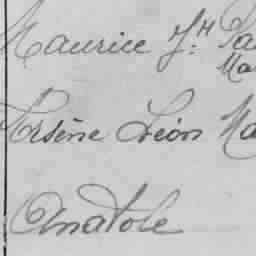 Maurice J.H
Arsène Léon
Anatole